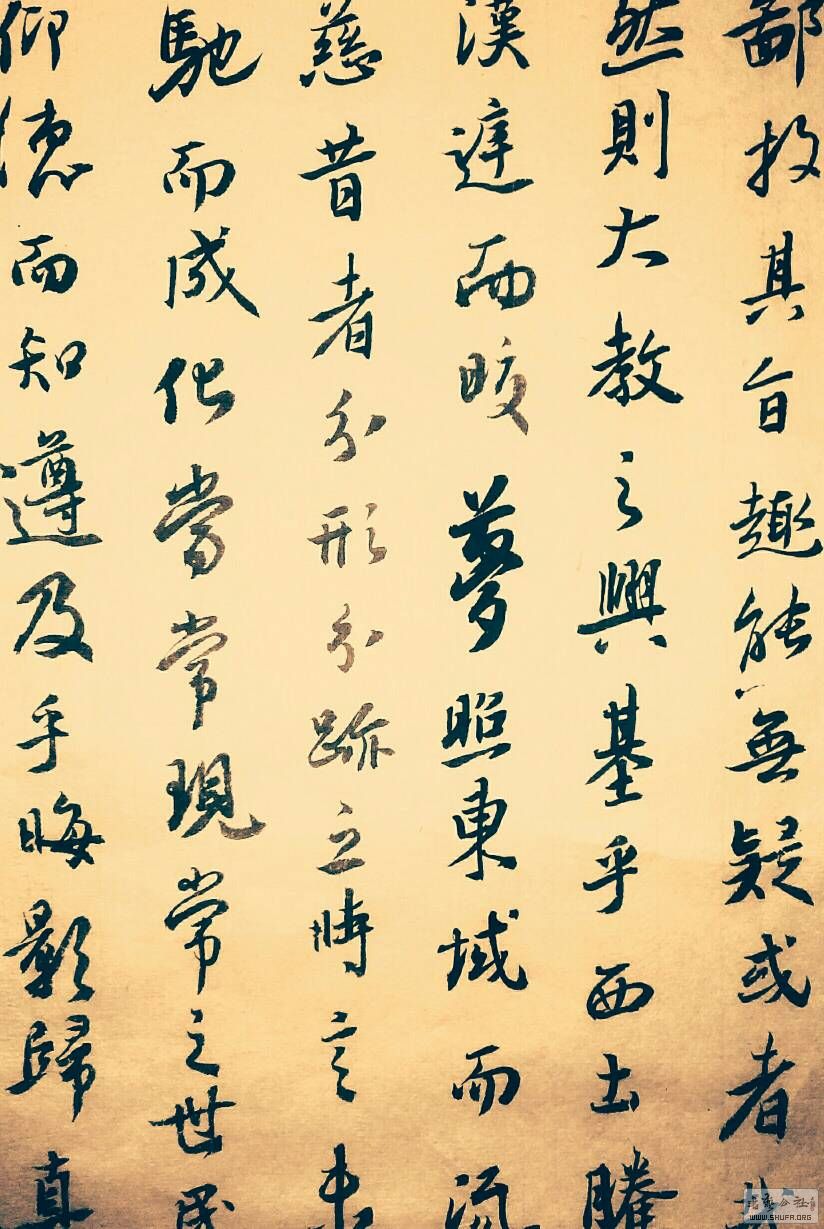 鄙投其旨趣能無疑或者
然則大教之興基乎西土騰
漢庭而皎夢照東域而流
慈昔者分形分跡之時言未
馳而成化當常現常之世民
仰德而知遵及乎晦影歸真
WWW.SHUFA.ORG